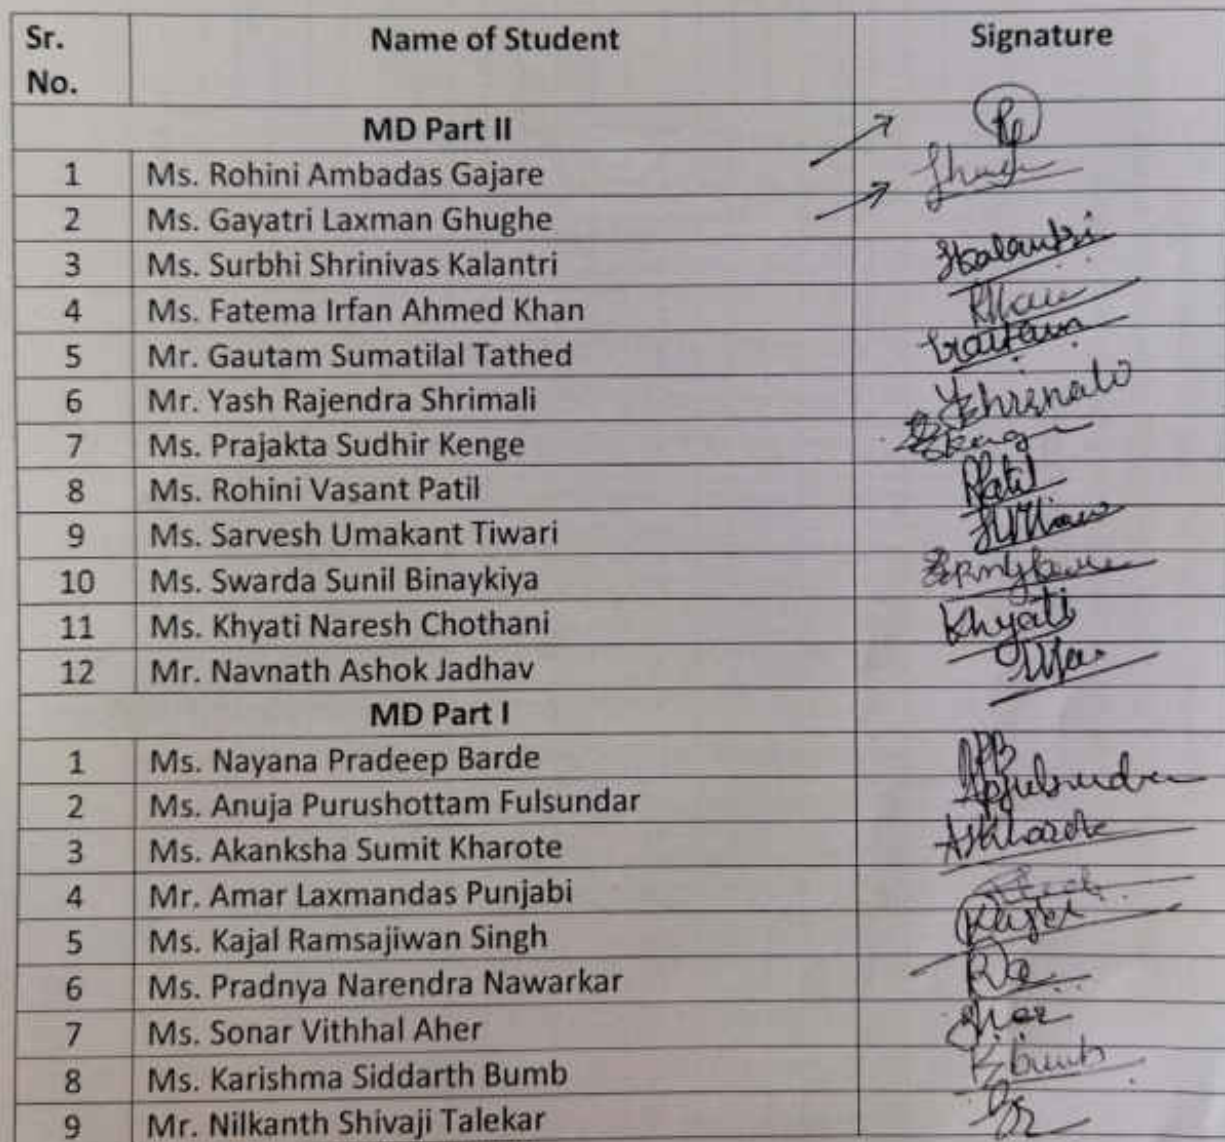 Sr. No. Name of Student Signature
MD Part II
1 Ms. Rohini Ambadas Gajare
2 Ms. Gayatri Laxman Ghughe
3 Ms. Surbhi Shrinivas Kalantri Kalantri
4 Ms. Fatema Irfan Ahmed Khan
5 Mr. Gautam Sumatilal Tathed Gautam
6 Mr. Yash Rajendra Shrimali
7 Ms. Prajakta Sudhir Kenge
8 Ms. Rohini Vasant Patil Patil
9 Ms. Sarvesh Umakant Tiwari
10 Ms. Swarda Sunil Binaykiya
11 Ms. Khyati Naresh Chothani Khyati
12 Mr. Navnath Ashok Jadhav
MD Part I
1 Ms. Nayana Pradeep Barde
2 Ms. Anuja Purushottam Fulsundar
3 Ms. Akanksha Sumit Kharote ASKharote
4 Mr. Amar Laxmandas Punjabi
5 Ms. Kajal Ramsajiwan Singh
6 Ms. Pradnya Narendra Nawarkar
7 Ms. Sonar Vithhal Aher
8 Ms. Karishma Siddarth Bumb
9 Mr. Nilkanth Shivaji Talekar